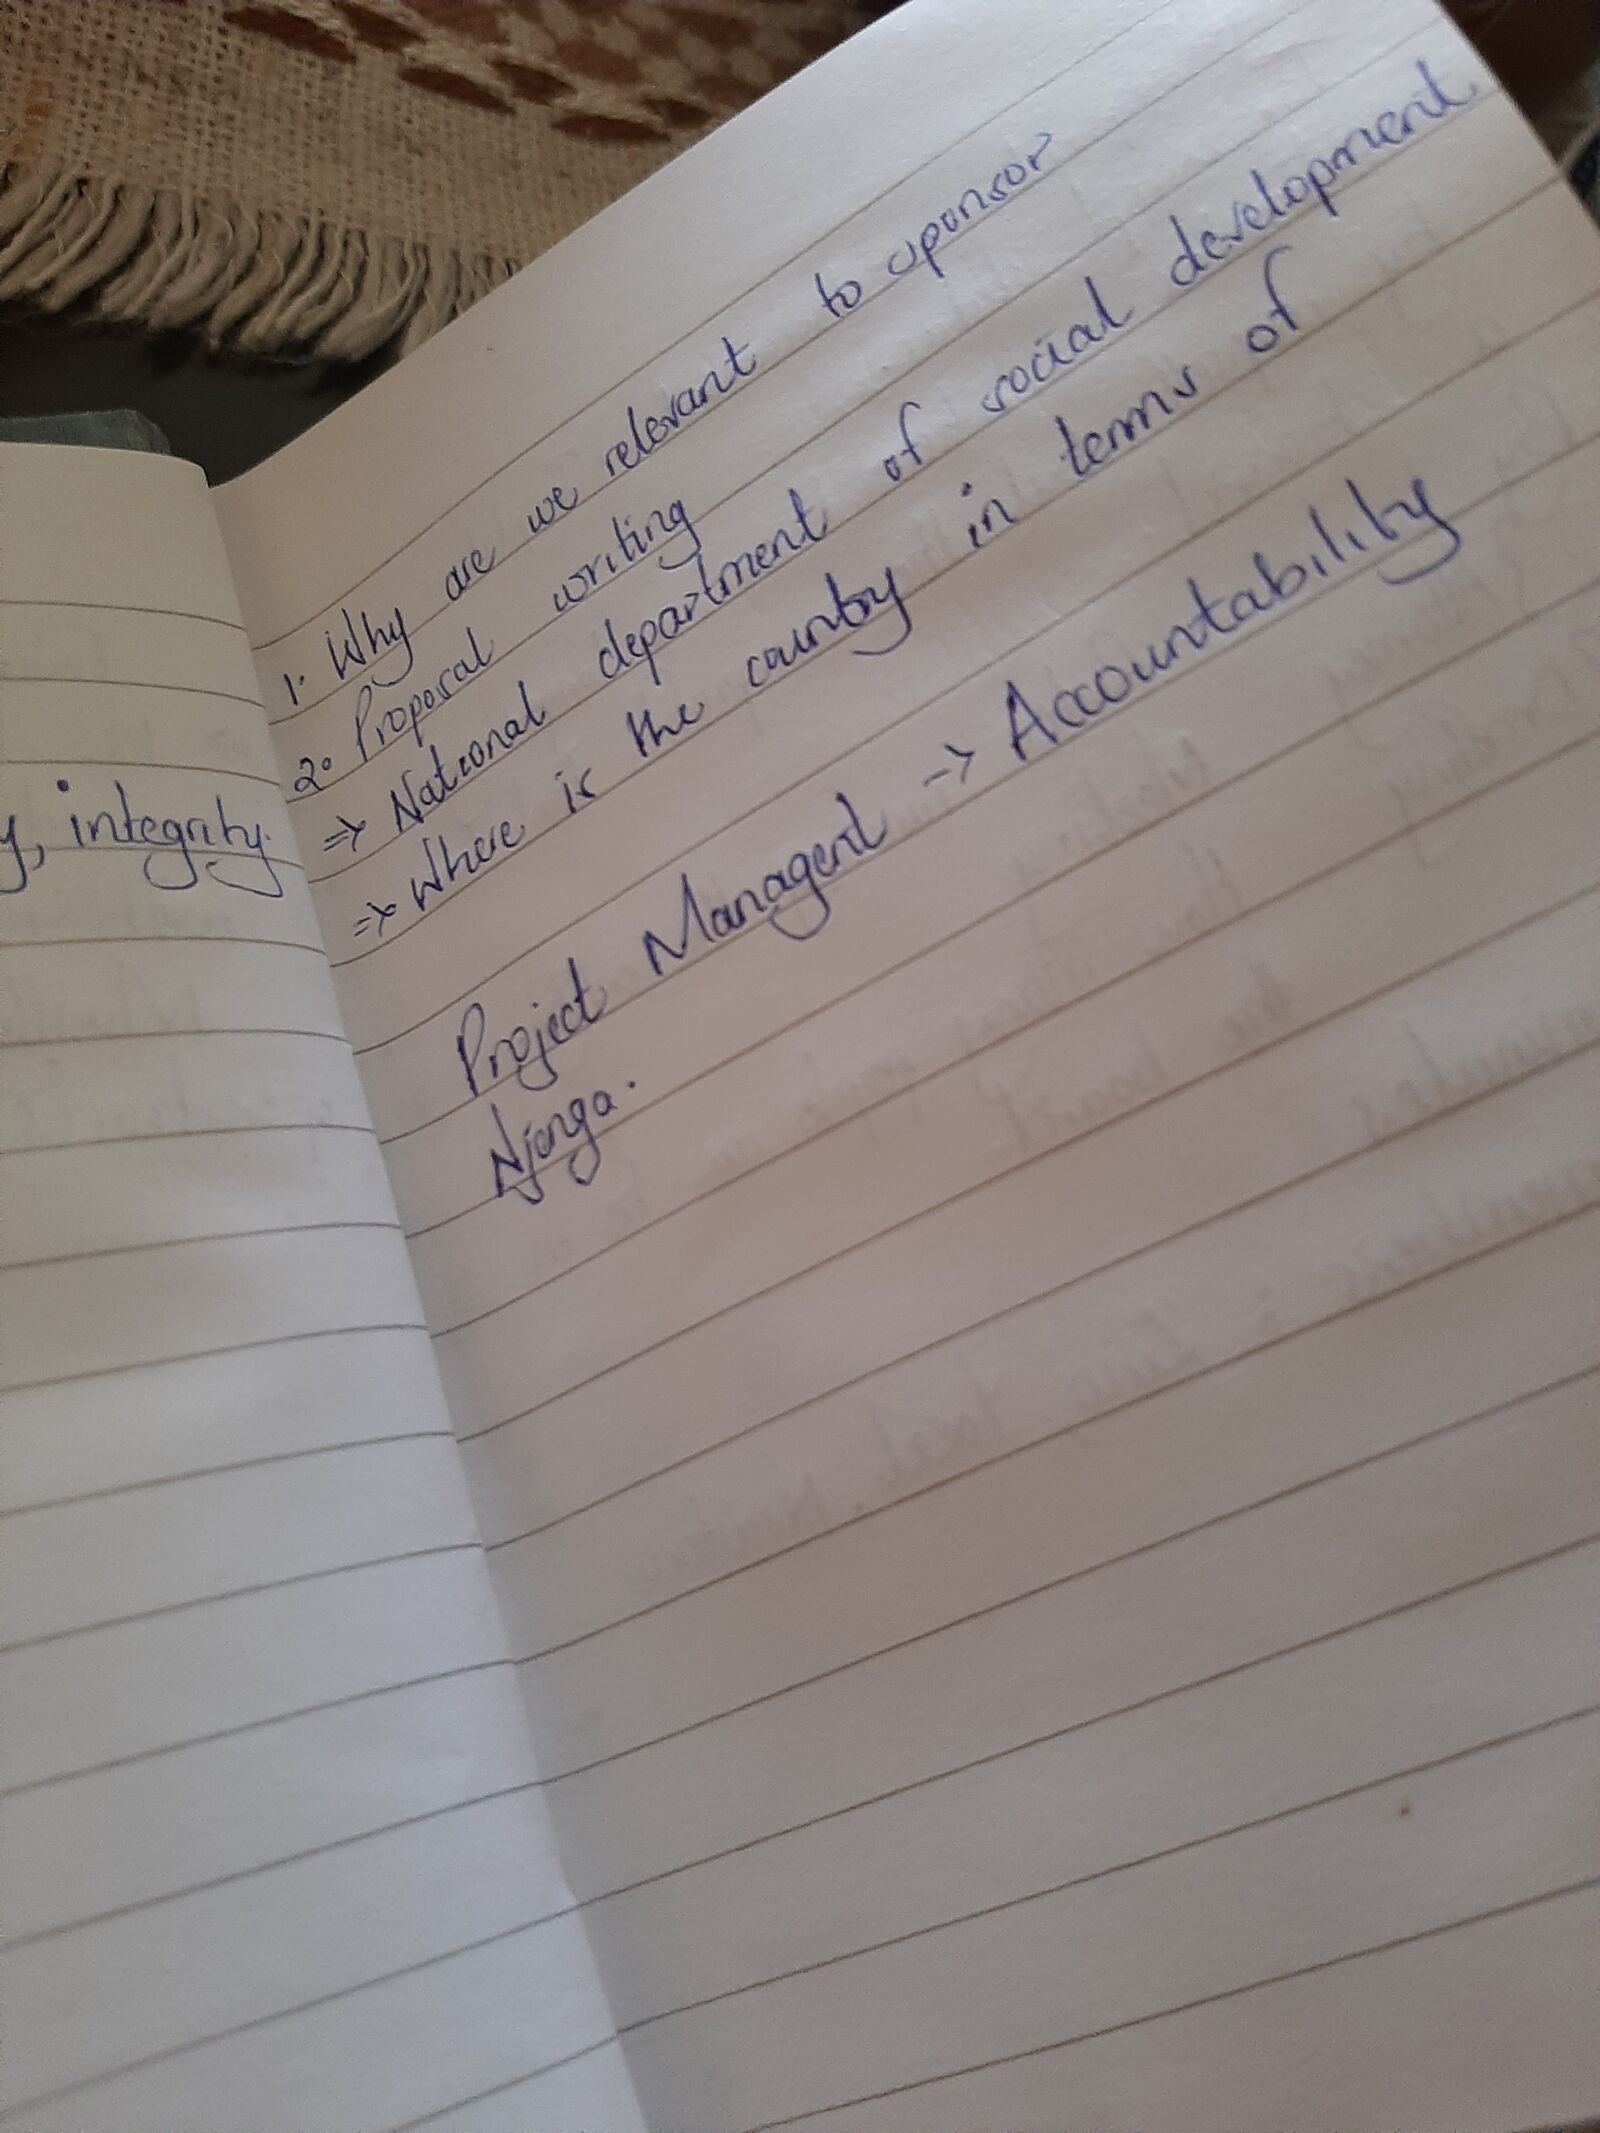 y, integrity.
1. Why are we relevant to sponsor
2. Proposal writing
=> National department of social development.
=> Where is the country in terms of
Project Managent -> Accountability
Njonga.